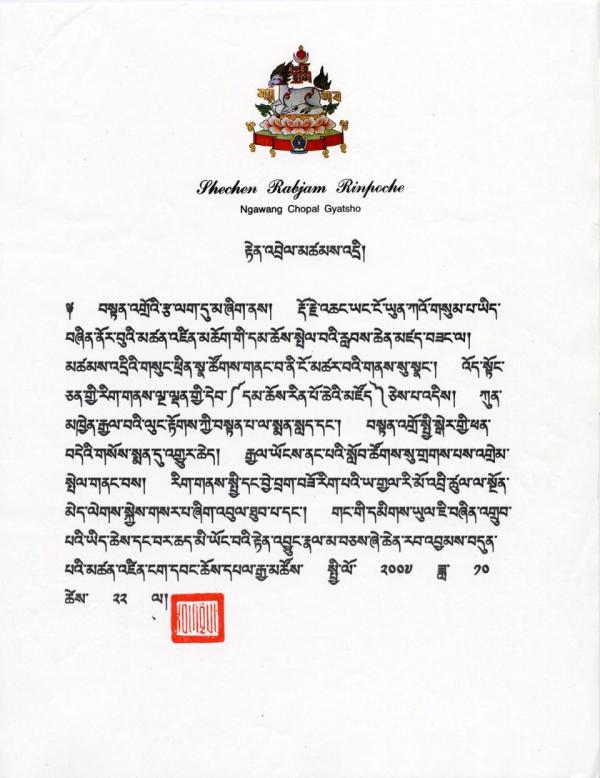 Shechen Rabjam Rinpoche
Ngawang Chopal Gyatsho
རྟེན་འབྲེལ་མཚམས་འདྲི།
༧ བསྟན་འགྲོའི་རྩ་ལག་དུ་མ་ཞིག་ནས། རྡོ་རྗེ་འཆང་ཡང་ངོ་ཡུན་ཀའོ་གསུམ་པ་ཡིད་
བཞིན་ནོར་བུའི་མཚན་འཛིན་མཆོག་གི་དམ་ཆོས་སྤེལ་བའི་རླབས་ཆེན་མཛད་བཟང་ལ།
མཚམས་འདྲིའི་གསུང་ཕྲིན་སྣ་ཚོགས་གནང་བ་ནི་ངོ་མཚར་བའི་གནས་སུ་སྣང་། འོད་སྟོང་
ཅན་གྱི་རིག་གནས་ལྔ་ལྡན་གྱི་དེབ་༼དམ་ཆོས་རིན་པོ་ཆེའི་མཛོད༽ ཅེས་པ་འདིས། ཀུན་
མཁྱེན་རྒྱལ་བའི་ལུང་རྟོགས་ཀྱི་བསྟན་པ་ལ་སྨན་སླད་དང་། བསྟན་འགྲོ་སྤྱི་སྒེར་གྱི་ཕན་
བདེའི་གསོས་སྨན་དུ་འགྱུར་ཆེད། རྒྱལ་ཡོངས་ནང་པའི་སློབ་ཚོགས་སུ་གྲགས་པས་འགྲེམ་
སྤེལ་གནང་བས། རིག་གནས་སྤྱི་དང་བྱེ་བྲག་བཟོ་རིག་པའི་ཡ་གྱལ་རི་མོ་འབྲི་ཚུལ་ལ་སྔོན་
མེད་ལེགས་སྐྱེས་གསར་པ་ཞིག་འབུལ་ཐུབ་པ་དང་། གང་གི་དམིགས་ཡུལ་ཇི་བཞིན་འགྲུབ་
པའི་ཡིད་ཆེས་དང་བར་ཆད་མི་ཡོང་བའི་རྟེན་འབྱུང་རྣལ་མ་བཅས་ཞེ་ཆེན་རབ་འབྱམས་བདུན་
པའི་མཚན་འཛིན་ངག་དབང་ཆོས་དཔལ་རྒྱ་མཚོས་ སྤྱི་ལོ་ ༢༠༠༥ ཟླ་ ༡༠
ཚེས་ ༢༢ ལ།